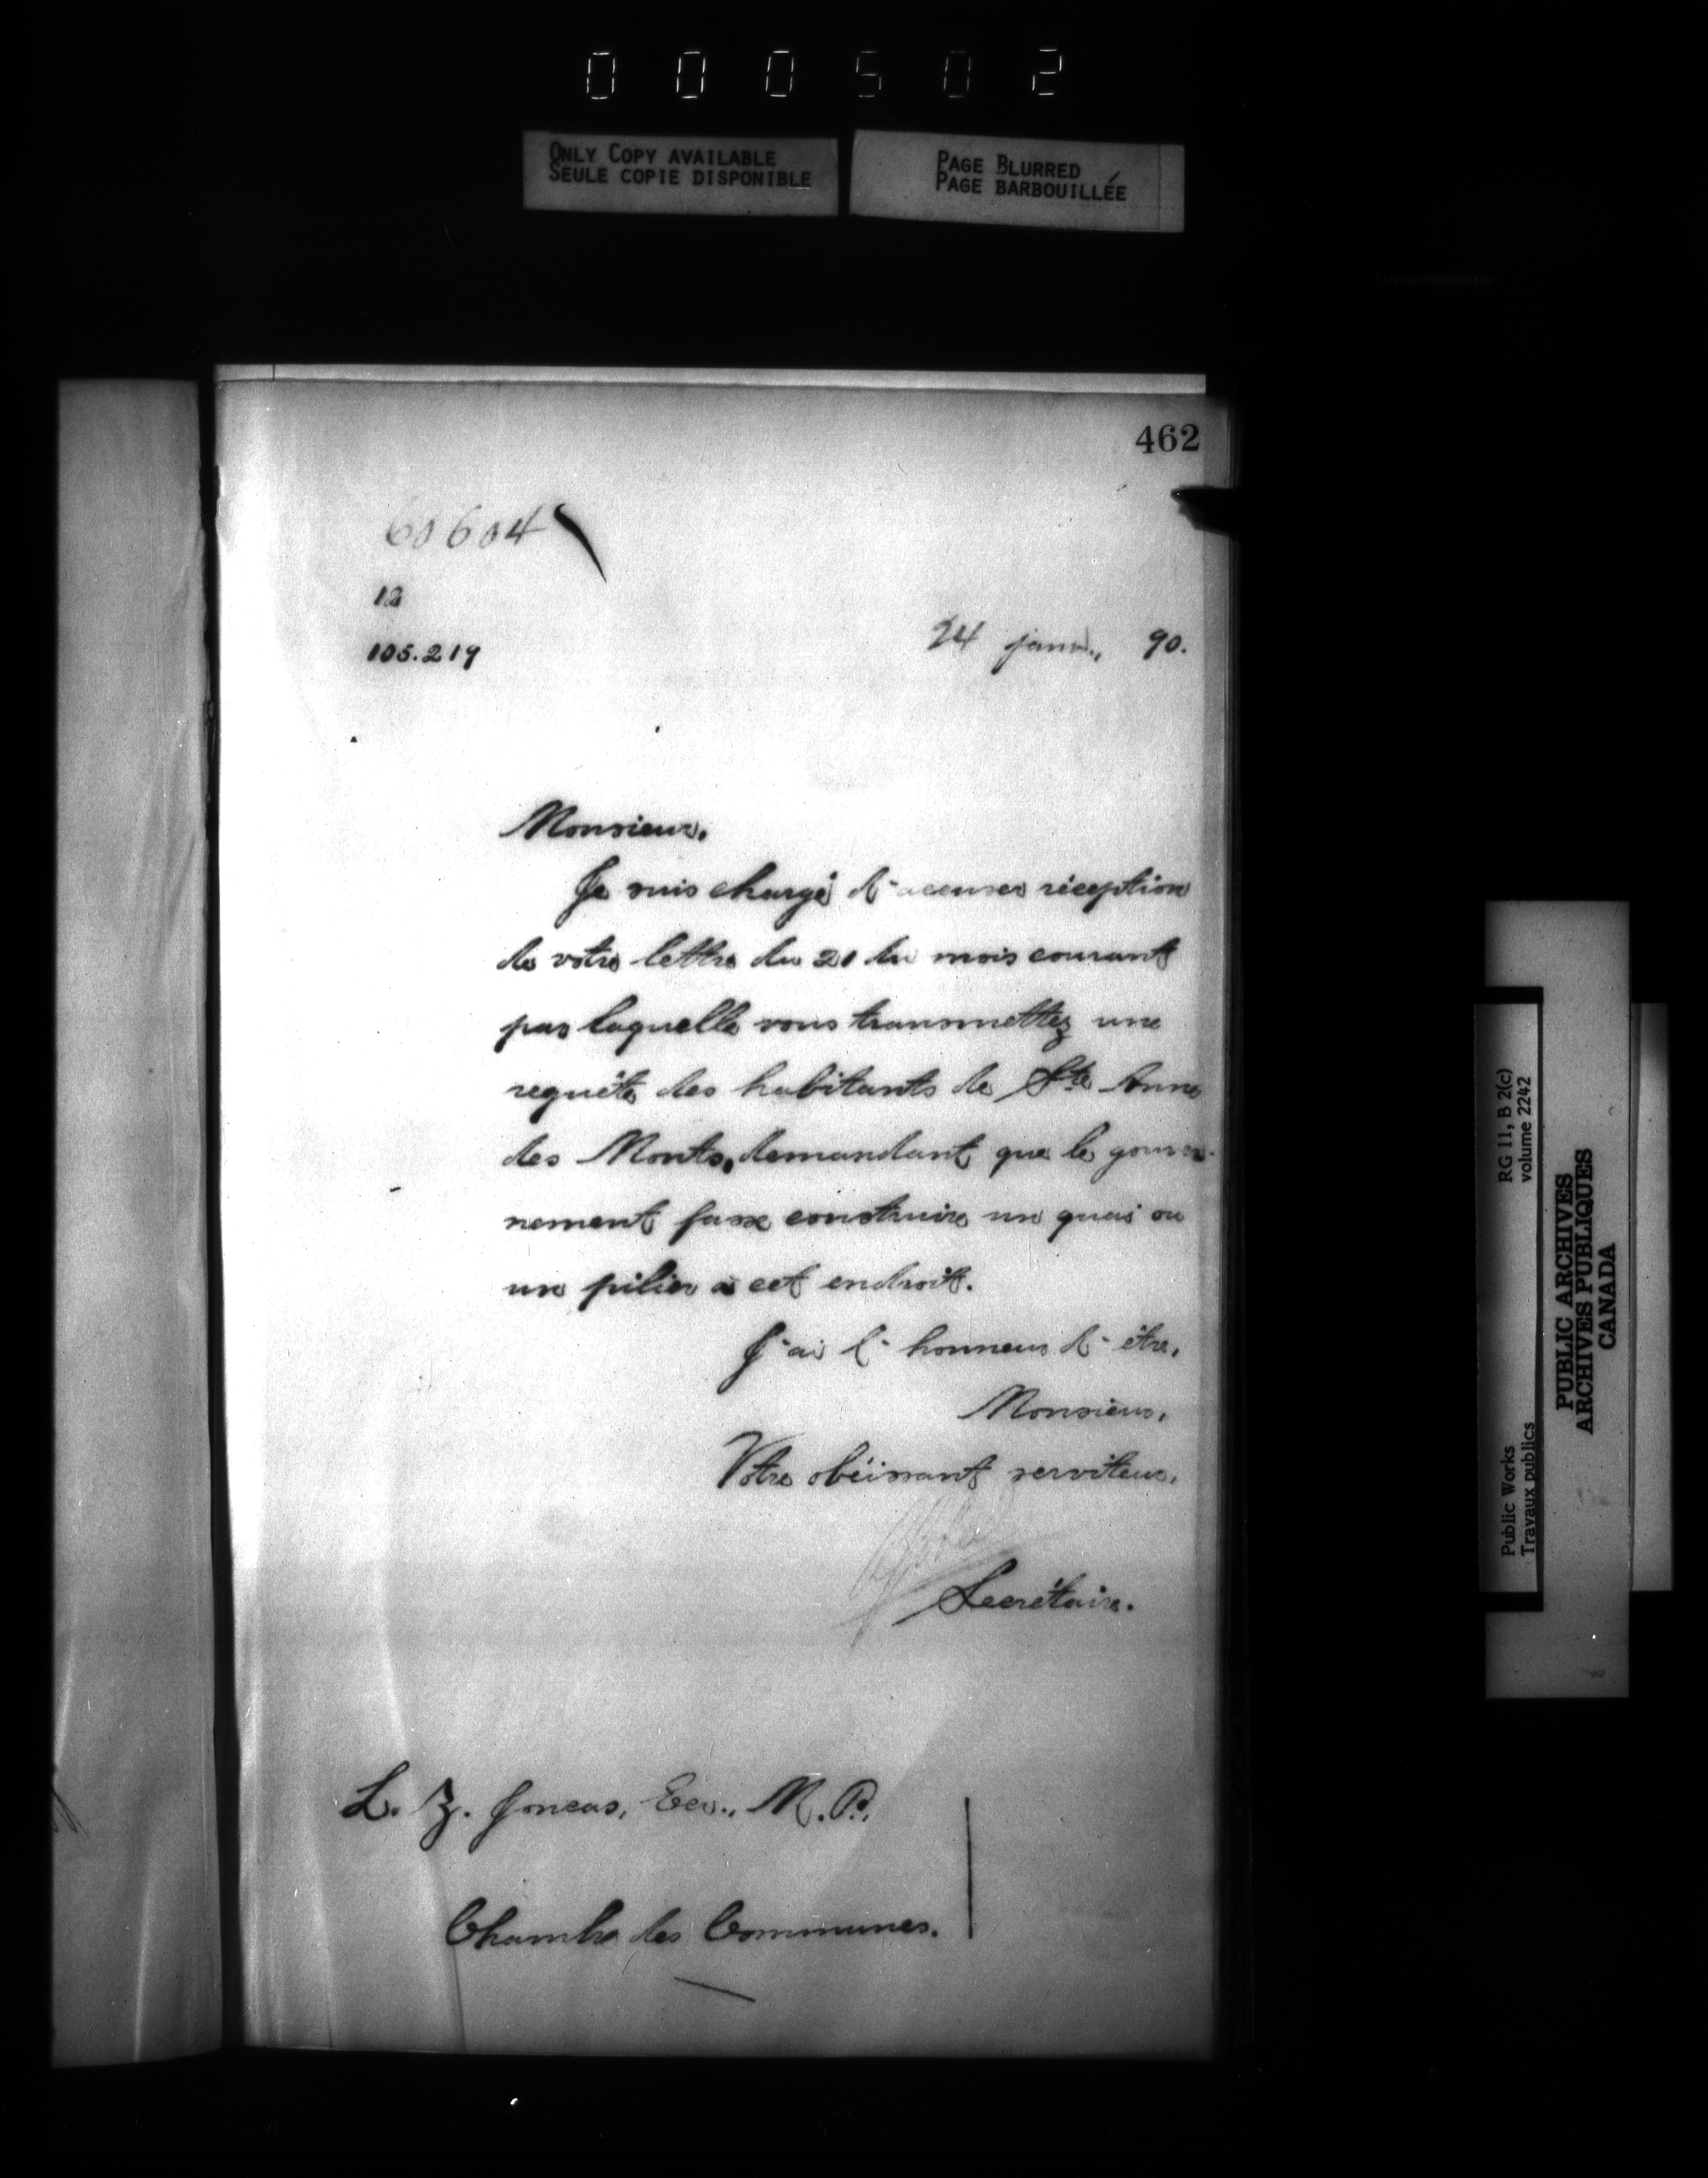 000502
ONLY COPY AVAILABLE
SEULE COPIE DISPONIBLE
PAGE BLURRED
PAGE BARBOUILLÉE
462
60604
12
105.219
24 janv., 90.
Monsieur,
Je suis chargé d'accuser réception
de votre lettre du 21 du mois courant
par laquelle vous transmettez une
requête des habitants de Ste Anne
des Monts, demandant que le gouver-
nement fasse construire un quai ou
un pilier à cet endroit.
J'ai l'honneur d'être,
Monsieur,
Votre obéissant serviteur,
Secrétaire.
L. Z. Joncas, Ecr., M. P.,
Chambre des Communes.
RG 11, B 2(c)
volume 2242
Public Works
Travaux publics
PUBLIC ARCHIVES
ARCHIVES PUBLIQUES
CANADA